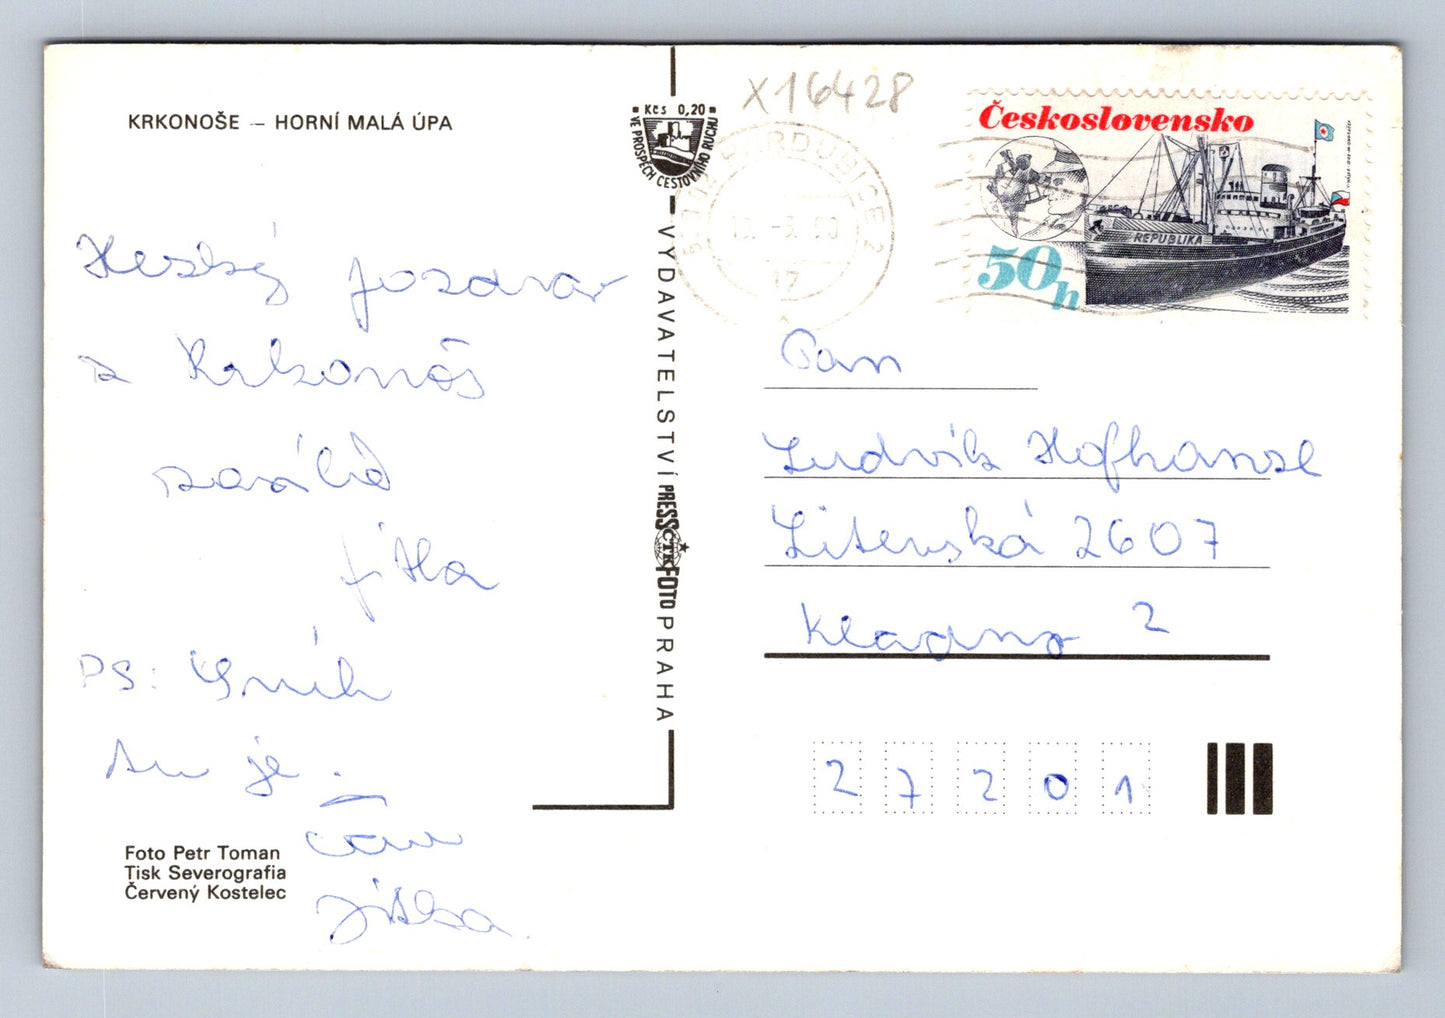 KRKONOŠE — HORNÍ MALÁ ÚPA
Hezký pozdrav
z Krkonoš
zasílá
Jitka
PS: Sníh
tu je.
Jitka
Foto Petr Toman
Tisk Severografia
Červený Kostelec
Kčs 0,20
VE PROSPĚCH CESTOVNÍHO RUCHU
VYDAVATELSTVÍ PRESSFOTO PRAHA
ČTK
X16428
PARDUBICE 2
-3. 90
17
Československo
REPUBLIKA
50h
Pan
Ludvík Hofhansl
Litevská 2607
Kladno 2
27201